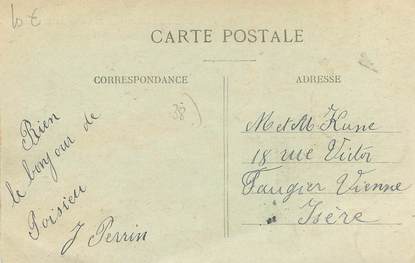 10 €
CARTE POSTALE
CORRESPONDANCE
ADRESSE
38
Bien
le bonjour de
Poisieu
J Perrin
M et M Kune
18 rue Victor
Faugier Vienne
Isère